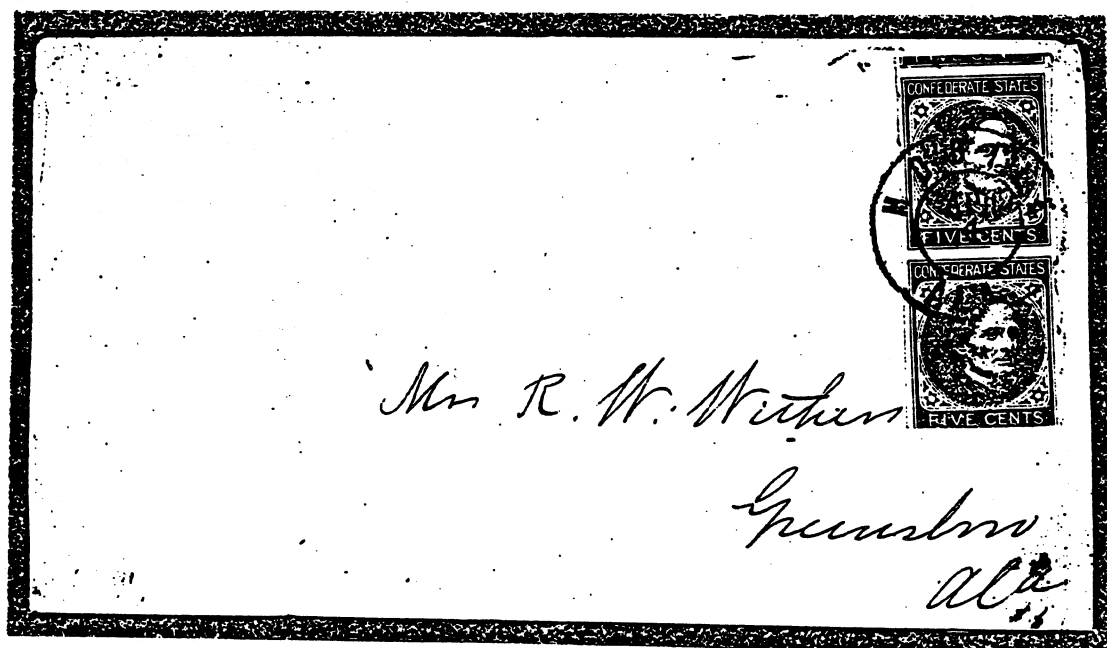 CONFEDERATE STATES
FIVE CENTS
CONFEDERATE STATES
FIVE CENTS
Mrs R. W. Withers
Greensboro
Ala